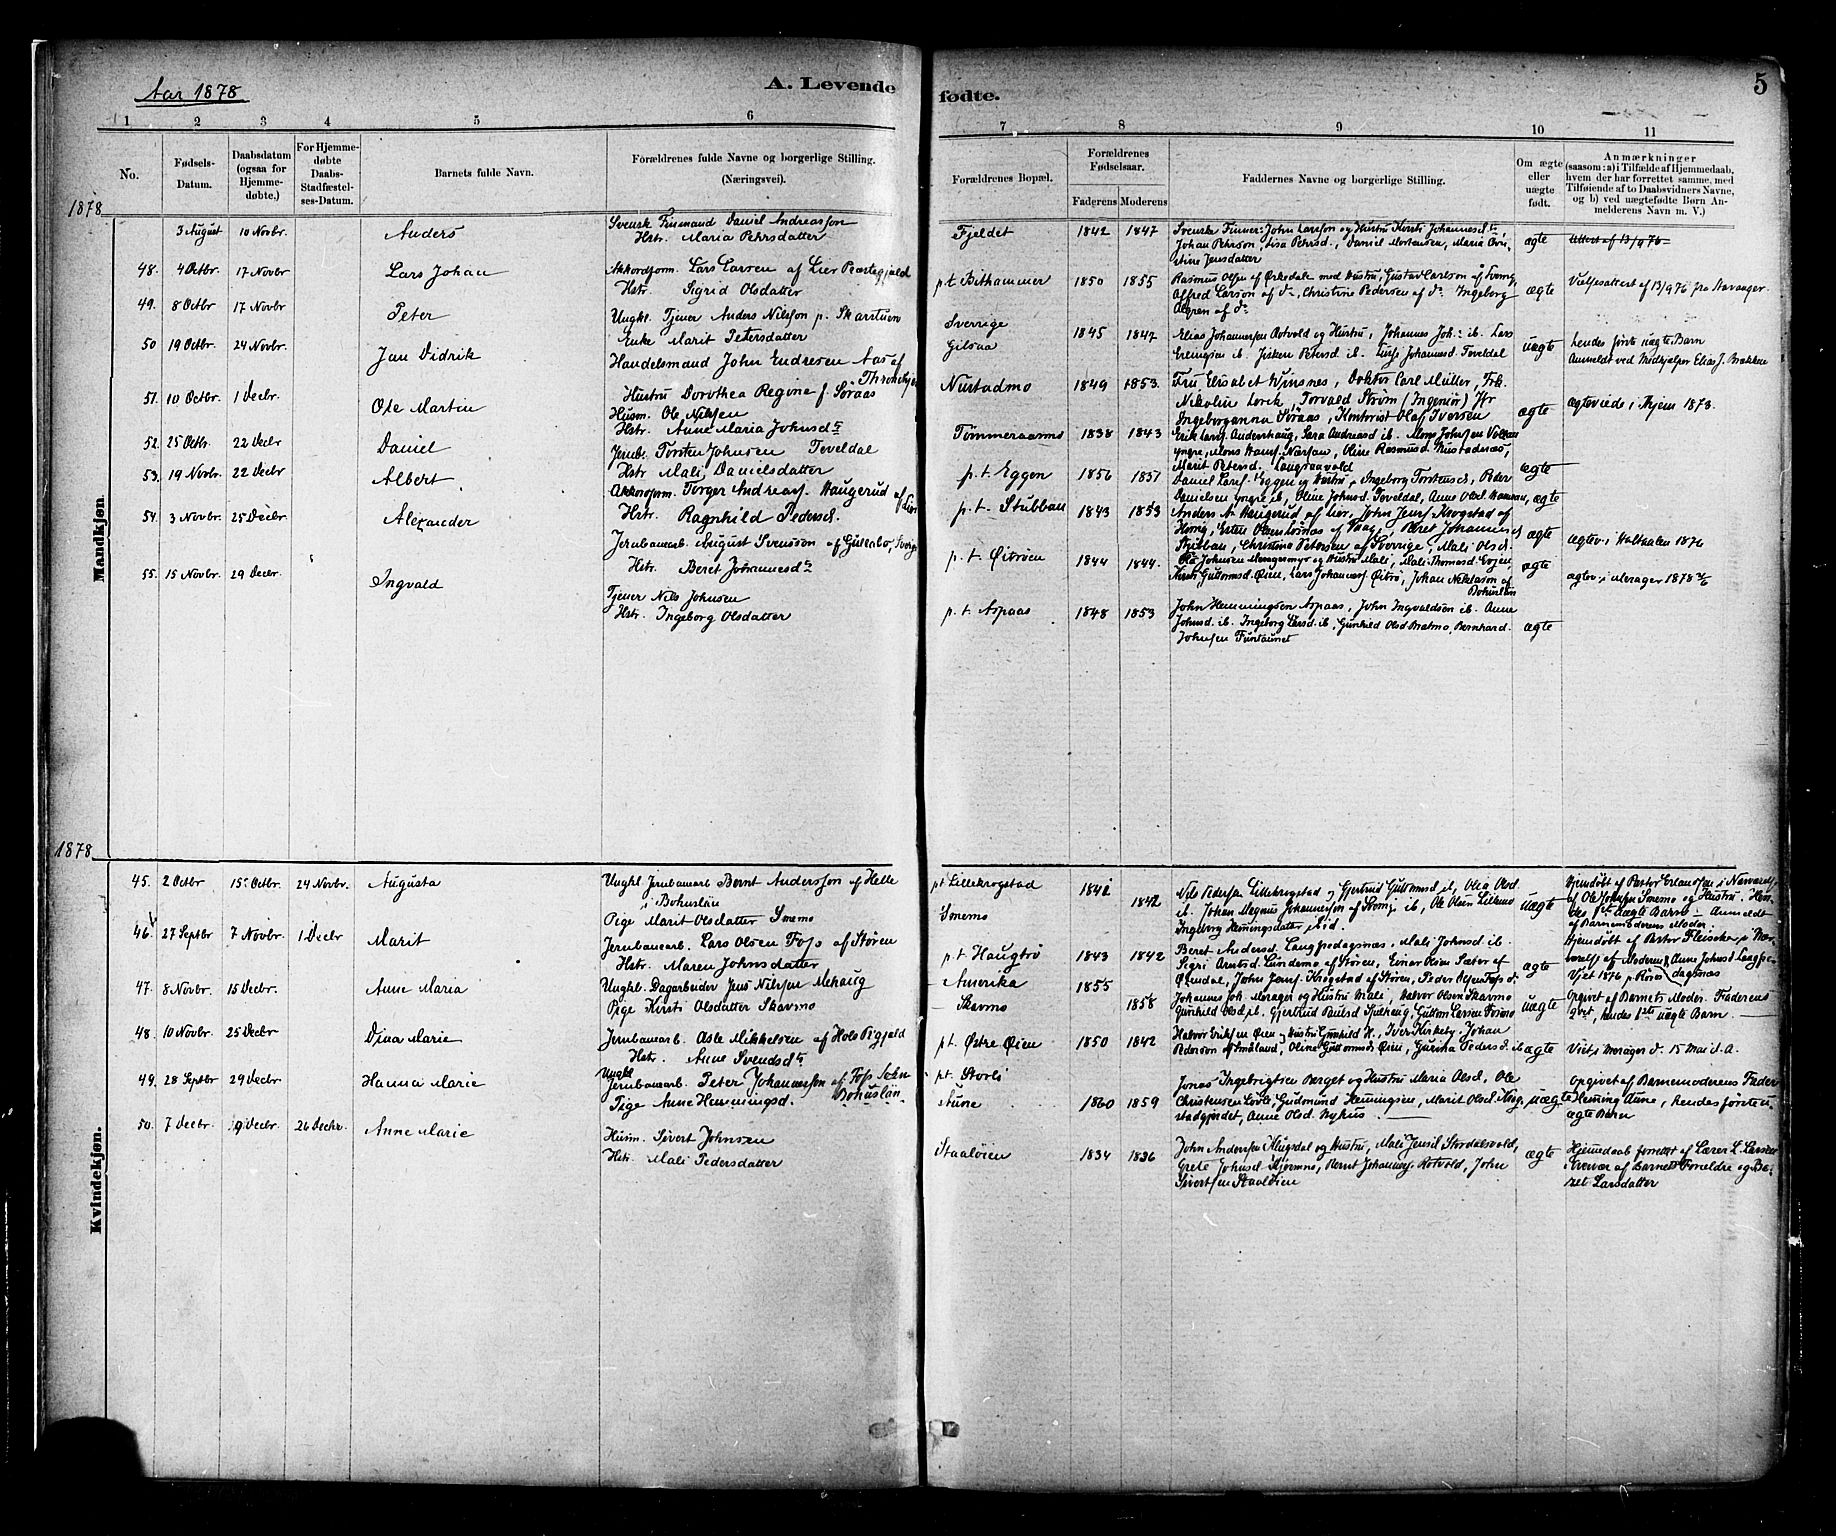 Aar 1878
A. Levende
fødte.
5
1 2 3 4 5 6
7 8 9 10 11
No.
Fødsels-
Datum.
Daabsdatum
(ogsaa for
Hjemme-
døbte.)
For Hjemme-
døbte
Daabs-
Stadfæstel-
ses-Datum.
Barnets fulde Navn.
Forældrenes fulde Navne og borgerlige Stilling.
(Næringsvei).
Forældrenes Bopæl.
Forældrenes
Fødselsaar.
Faderens Moderens
Faddernes Navne og borgerlige Stilling.
Om ægte
eller
uægte
født.
Anmærkninger
(saasom: a) i Tilfælde af Hjemmedaab,
hvem der har forrettet samme, med
Tilføiende af to Daabsvidners Navne,
og b) ved uægtefødte Børn An-
melderens Navn m. V.)
1878
Mandkjøn.
3 August 10 Novbr. Anders
Svensk Finmand Daniel Andreasson
Hstr. Maria Pehrsdatter
Fjeldet 1842 1847
Svenske Finner: John Larsson og Hustru Kersti Johannesd.
Johan Pehrson, Lisa Pehrsd., Daniel Mortensen, Maria Chri-
stine Jensdatter
ægte
Attest af 13/9 76
48. 4 Octbr. 17 Novbr Lars Johan
Akkordform. Lars Larsen af Lier Præstegjæld
Hstr. Sigrid Olsdatter
p.t. Bithammer 1850 1855
Rasmus Olsen af Ørkedalen med Hustru, Gustav Carlson af Sverig
Alfred Larson af do, Christine Pedersen af do Ingeborg
Algren af do
ægte
Vielsesattest af 13/9 76 fra Stavanger.
49. 8 Octbr 17 Novbr Peter
Ungkl. Tjener Anders Nilsson p. Skarstuen
Enke Marit Petersdatter
Sverrige
Gilsaa
1845 1847
Elias Johannessen Rotvold og Hustru, Johannes Joh. ib. Lars
Erlingsen ib. Johannesd. Teveldal
uægte
Hendes første uægte Barn
Anmeldt ved Medhjælper Elias J. Brækken
50 19 Octbr. 24 Novbr. Jan Didrik
Handelsmand John Endresen Aas af
Throndhjem
Hustru Dorothea Regine f. Søraas
Nustadmo 1849 1853.
Fru Elisabet Winsnes, Doktor Carl Müller, Frk.
Nikolin Lorck, Torvald Strøm (Ingeniør) Fr
Ingeborganna Søraas, Kontorist Olaf Iversen
ægte
Ægteviede i Thjem 1873.
51. 10 Octbr. 1 Decbr. Ole Martin
Husm. Ole Nilsen
Hstr. Anne Maria Johnsdr
Tømmeraasmo 1838 1843
Erik Lars. Andershaug, Sara Andreasd ib. Mons Johnsen Volkau
yngre, Mons Hans. Nårstan, Oline Rasmusd Nustadnæs,
Marit Petersd. Langsaavold
ægte
52. 25 Octbr. 22 Decbr Daniel
Jernb. Torsten Johnsen Teveldal
Hstr Mali Danielsdatter
p.t. Eggen 1856 1837
Daniel Lars. Eggen og Hustru, Ingeborg Torstensd., Peder
Danielsen yngre ib, Oline Johnsd. Teveldal, Anne Olsd.
ægte
53. 19 Novbr. 22 Decbr Albert
Akkordform. Torger Andreas. Haugerud af Lier
Hstr. Ragnhild Pedersd.
p.t. Stubban 1843 1853
Anders A. Haugerud af Lier, John Jens. Krogstad af
ægte
Ægtev. i Holtaalen 1876
54. 3 Novbr. 25 Decbr Alexander
Jernbanearb. August Svensson af Gullerbo, Sverige
Hstr. Beret Johannesdr
p.t. Øitrøen 1844 1844.
Ola Johnsen Mengesmyr og Hustru Mali, Mali Thomasd. Evjen
Kersti Guttormsd. Øien, Lars Johannes. Øitrø, Johan Niklasson af
Bohuslän
ægte
ægtev. i Merager 1878
55. 15 Novbr. 29 Decbr. Ingvald
Tjener Nils Johnsen
Hstr. Ingeborg Olsdatter
p.t. Aspaas 1848 1853
John Hemmingsen Aspaas, John Ingvaldsen ib. Anne
Johnsd. ib. Ingeborg Larsd. ib, Gunhild Olsd Bratmo, Bernhard
Johnsen Funtaunet
ægte
1878
Kvindekjøn.
45. 2 Octbr 15 Octbr. 24 Novbr. Augusta
Ungkl Jernbanearb Bernt Andersson af Helle
i Bohuslän
Pige Marit Olsdatter Smemo
pt Lillekrogstad
Smemo
1841 1842
Nils Peders. Lillekrogstad og Gjertrud Guttormsd ib, Olea Olsd
ib. Johan Magnus Johannesson af Sverig ib, Ole Olsen Lillemo
Ingeborg Hemingsdatter ibid.
uægte
Hjemdøbt af Pastor Erlandsen i Nærværelse
af Ole Johnsen Smemo og Hustru. Hen-
des 1ste uægte Barn — Anmeldt
af Barnemoderens Moder
46. 27 Septbr 7 Novbr. 1 Decbr Marit
Jernbanearb. Lars Olsen Foss af Støren
Hstr. Maren Johnsdatter
p.t. Haugtrø 1843 1842
Beret Andersd. Langpedagsnæs, Mali Johnsd ib.
Sigri Arntsd. Lundemo af Støren, Einar Olsen Sæter af
Ørendal, John Jens. Krogstad af Støren, Peder Olsen Foss do.
ægte
Hjemdøbt af Pastor Fleischer i Nær-
værelse af Moderen & Anne Johnsd Langpe-
Viet 1876 p Røros dagsnæs
47. 8 Novbr. 15 Decbr. Anne Maria
Ungkl. Dagarbeider Jens Nilssen Mehaug
Pige Kirsti Olsdatter Skarmo
Amerika
Skarmo
1855 1858
Johannes Joh. Merager og Hustru Mali, Halvor Olsen Skarmo
Gunhild Olsd ib, Gjertrud Paulsd Hjulhaug, Guttorm Larsen
uægte
Opgivet af Barnets Moder. Faderens
2det, hendes 1ste uægte Barn.
48. 10 Novbr. 25 Decbr. Dina Marie
Jernbanearb. Asle Mikkelsen af Hols Pgjæld
Hstr. Anne Svendsdr
pt. Østre Øien 1850 1842
Halvor Eriksen Øien og Hustru Gunhild H., Iver Kirkeby. Johan
Pedersson af Småland, Oline Guttormsd Øien, Gurina Pedersd ib
ægte
Viet i Merager d. 15 Mai d. A.
49. 28 Septbr 29 Decbr. Hanna Marie
Ungkl
Jernbanearb. Peter Johannesson af Foss Sokn
Bohuslän
Pige Anne Hemmingsd.
pt. Storli
Aune
1860 1859
Jonas Ingebrigtsen Berget og Hustru Maria Olsd, Ole
Christensen Lovli, Gudmund Hemingsen, Marit Olsd Krog-
stadgjerdet, Anne Olsd. Nyhus
uægte
Opgivet af Barnemoderens Fader
Heming Aune, hendes første u-
ægte Barn
50. 7 Decbr. 9 Decbr. 26 Decbr. Anne Marie
Husm. Sivert Johnsen
Hstr. Mali Pedersdatter
Staaløien 1834 1836
John Andersen Klugsdal og Hustru, Mali Jensd. Stordalsvold,
Grete Johnsd. Hjermo, Bernt Johannes. Rotvold, John
Sivertsen Staaløien
ægte
Hjemdaab forrettet af Lærer L. Larsen
i Overvær af Barnets Forældre og Be-
ret Larsdatter